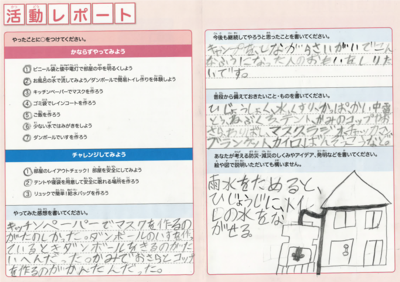 活動レポート
やったことに○をつけてください。
かならずやってみよう
1 ビニール袋と懐中電灯で部屋の中を明るくしよう
2 お風呂の水で流してみよう/ダンボールで簡易トイレ作りを体験しよう
3 キッチンペーパーでマスクを作ろう
4 ゴミ袋でレインコートを作ろう
5 ご飯を作ろう
6 少ない水ではみがきをしよう
7 ダンボールでいすを作ろう
チャレンジしてみよう
1 部屋のレイアウトチェック! 部屋を安全にしてみよう
2 テントや寝袋を用意して安全に眠れる場所を作ろう
3 リュックで簡単!防水バッグを作ろう
やってみた感想を書いてください。
キッチンペーパーでマスクを作るの
がたのしかった。ダンボールのいすを作っ
ているとダンボールをきるのがた
いへんだった。かみでおさらとコップ
を作るのがかんたんだった。
今後も継続してやろうと思ったことを書いてください。
キャンプをしながらさいがいでにん
なようになった人のおせわをしりた
いです。
普段から備えておきたいこと・ものを書いてください。
ひじょうしょく、水、くすり、かっぱ、かい中電
とう、
マスク、ラ
あなたが考える防災・減災のしくみやアイデア、発明などを書いてください。
絵や図で説明いただいても構いません。
雨水をためると、
ひじょうじに、トイ
レの水をな
がせる。